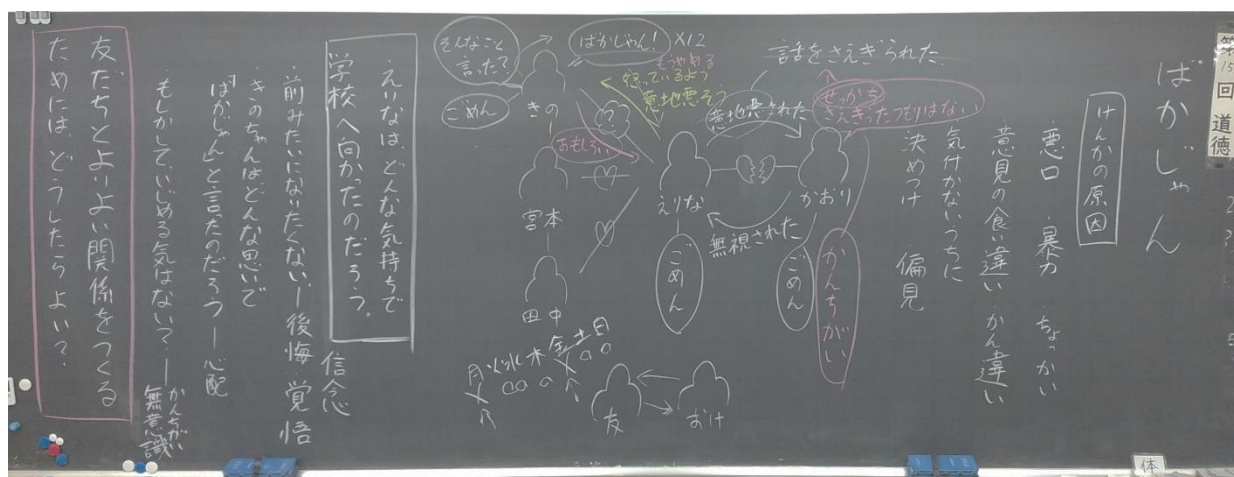 第15回 道徳
ばかじゃん
けんかの原因
悪口 暴力 ちょっかい
意見の食い違い かん違い
気付かないうちに
決めつけ 偏見
話をさえぎられた
せっかち
さえぎったつもりはない
かんちがい
意地悪された
かおり
えりな
無視された
ごめん
ごめん
ばかじゃん!
×12
もうやめる
怒っているよう
意地悪そう
そんなこと
言った?
ごめん
きの
?
おもしろい
宮本
田中
月火水木金土日
友
おけ
えりなは、どんな気持ちで
学校へ向かったのだろう。
信念
・前みたいになりたくない。ー後悔 覚悟
・きのちゃんはどんな思いで
「ばかじゃん」と言ったのだろう ー心配
もしかして、いじめる気はない?ー無意識
かんちがい
友だちとよりよい関係をつくる
ためには、どうしたらよい?
体